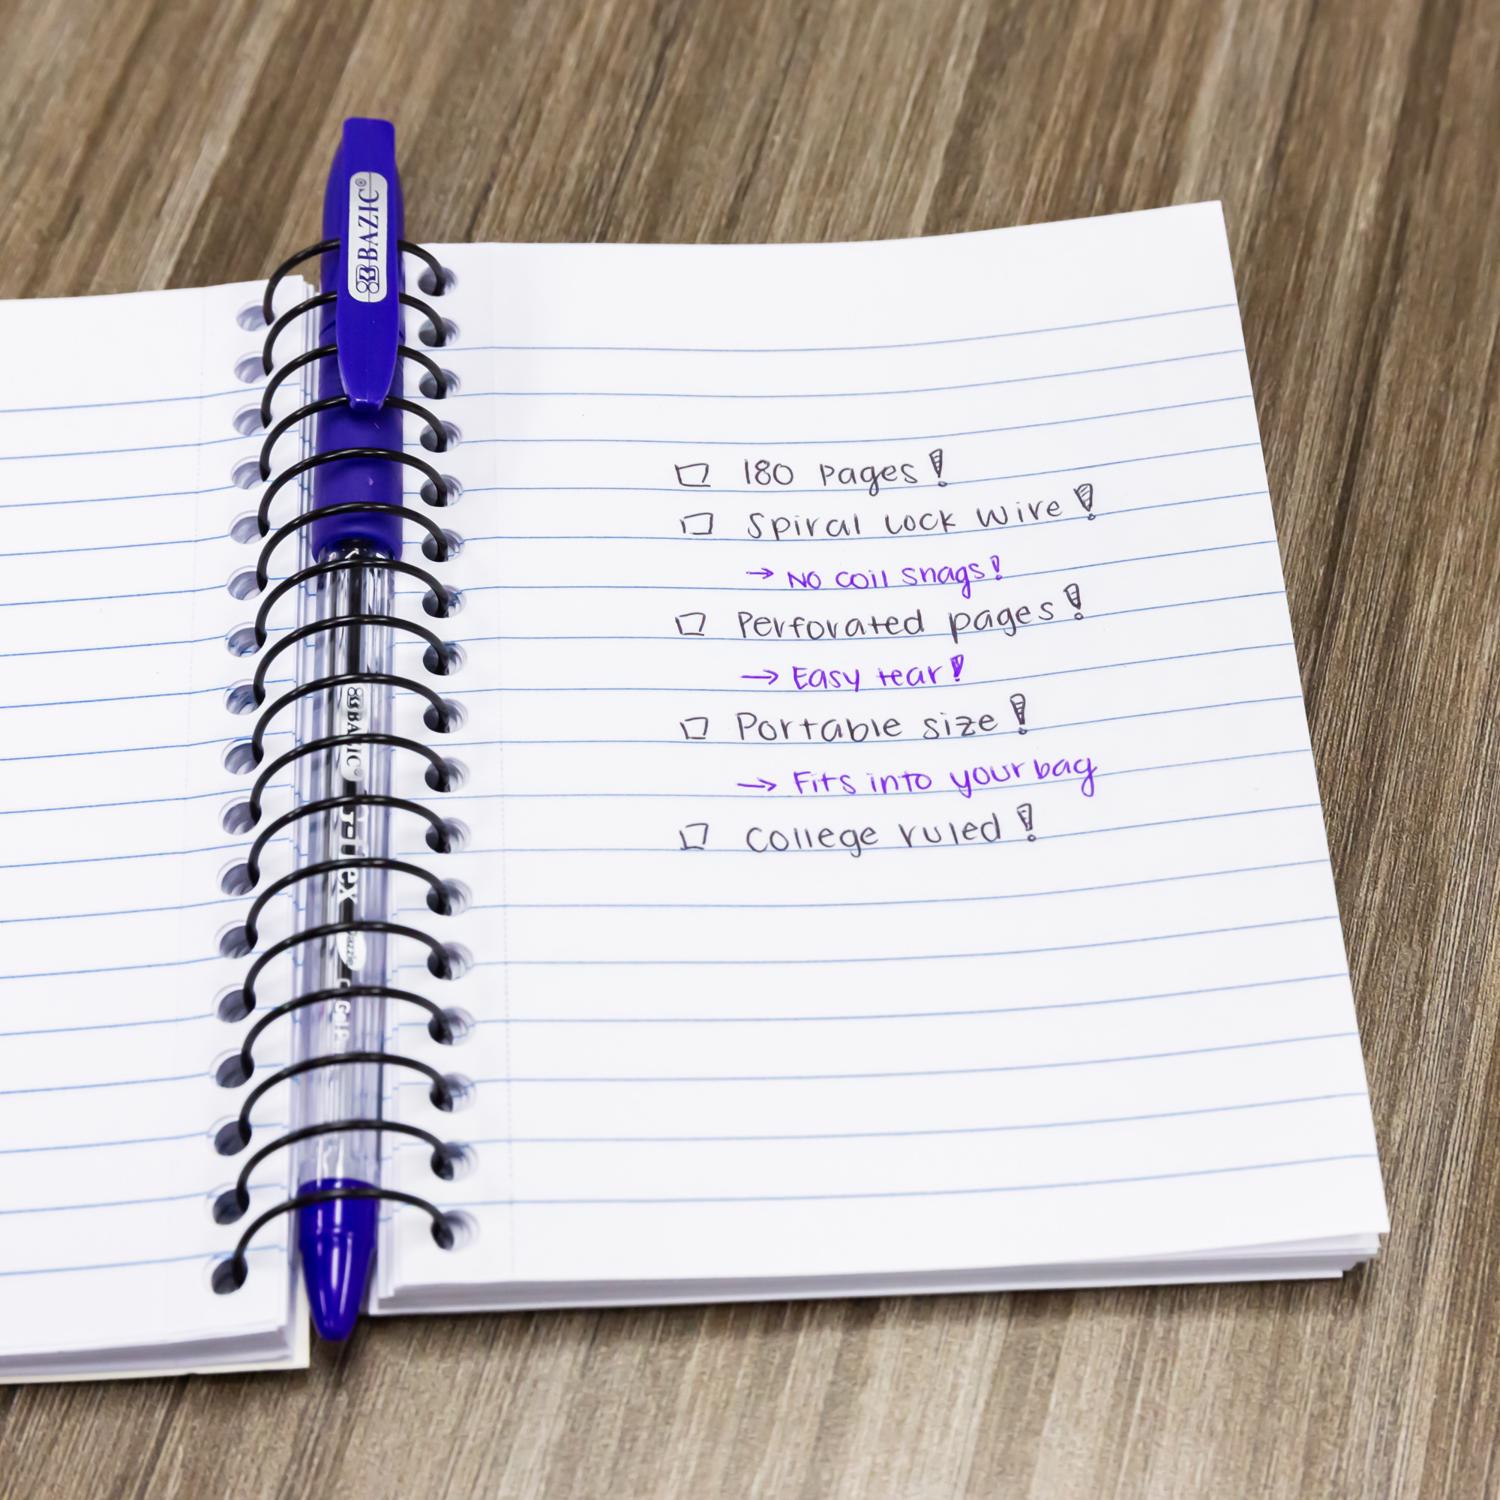 BAZIC®
BAZIC®
180 pages!
Spiral Lock Wire!
→ No coil snags!
Perforated pages!
→ Easy tear!
Portable size!
→ Fits into your bag
College ruled!